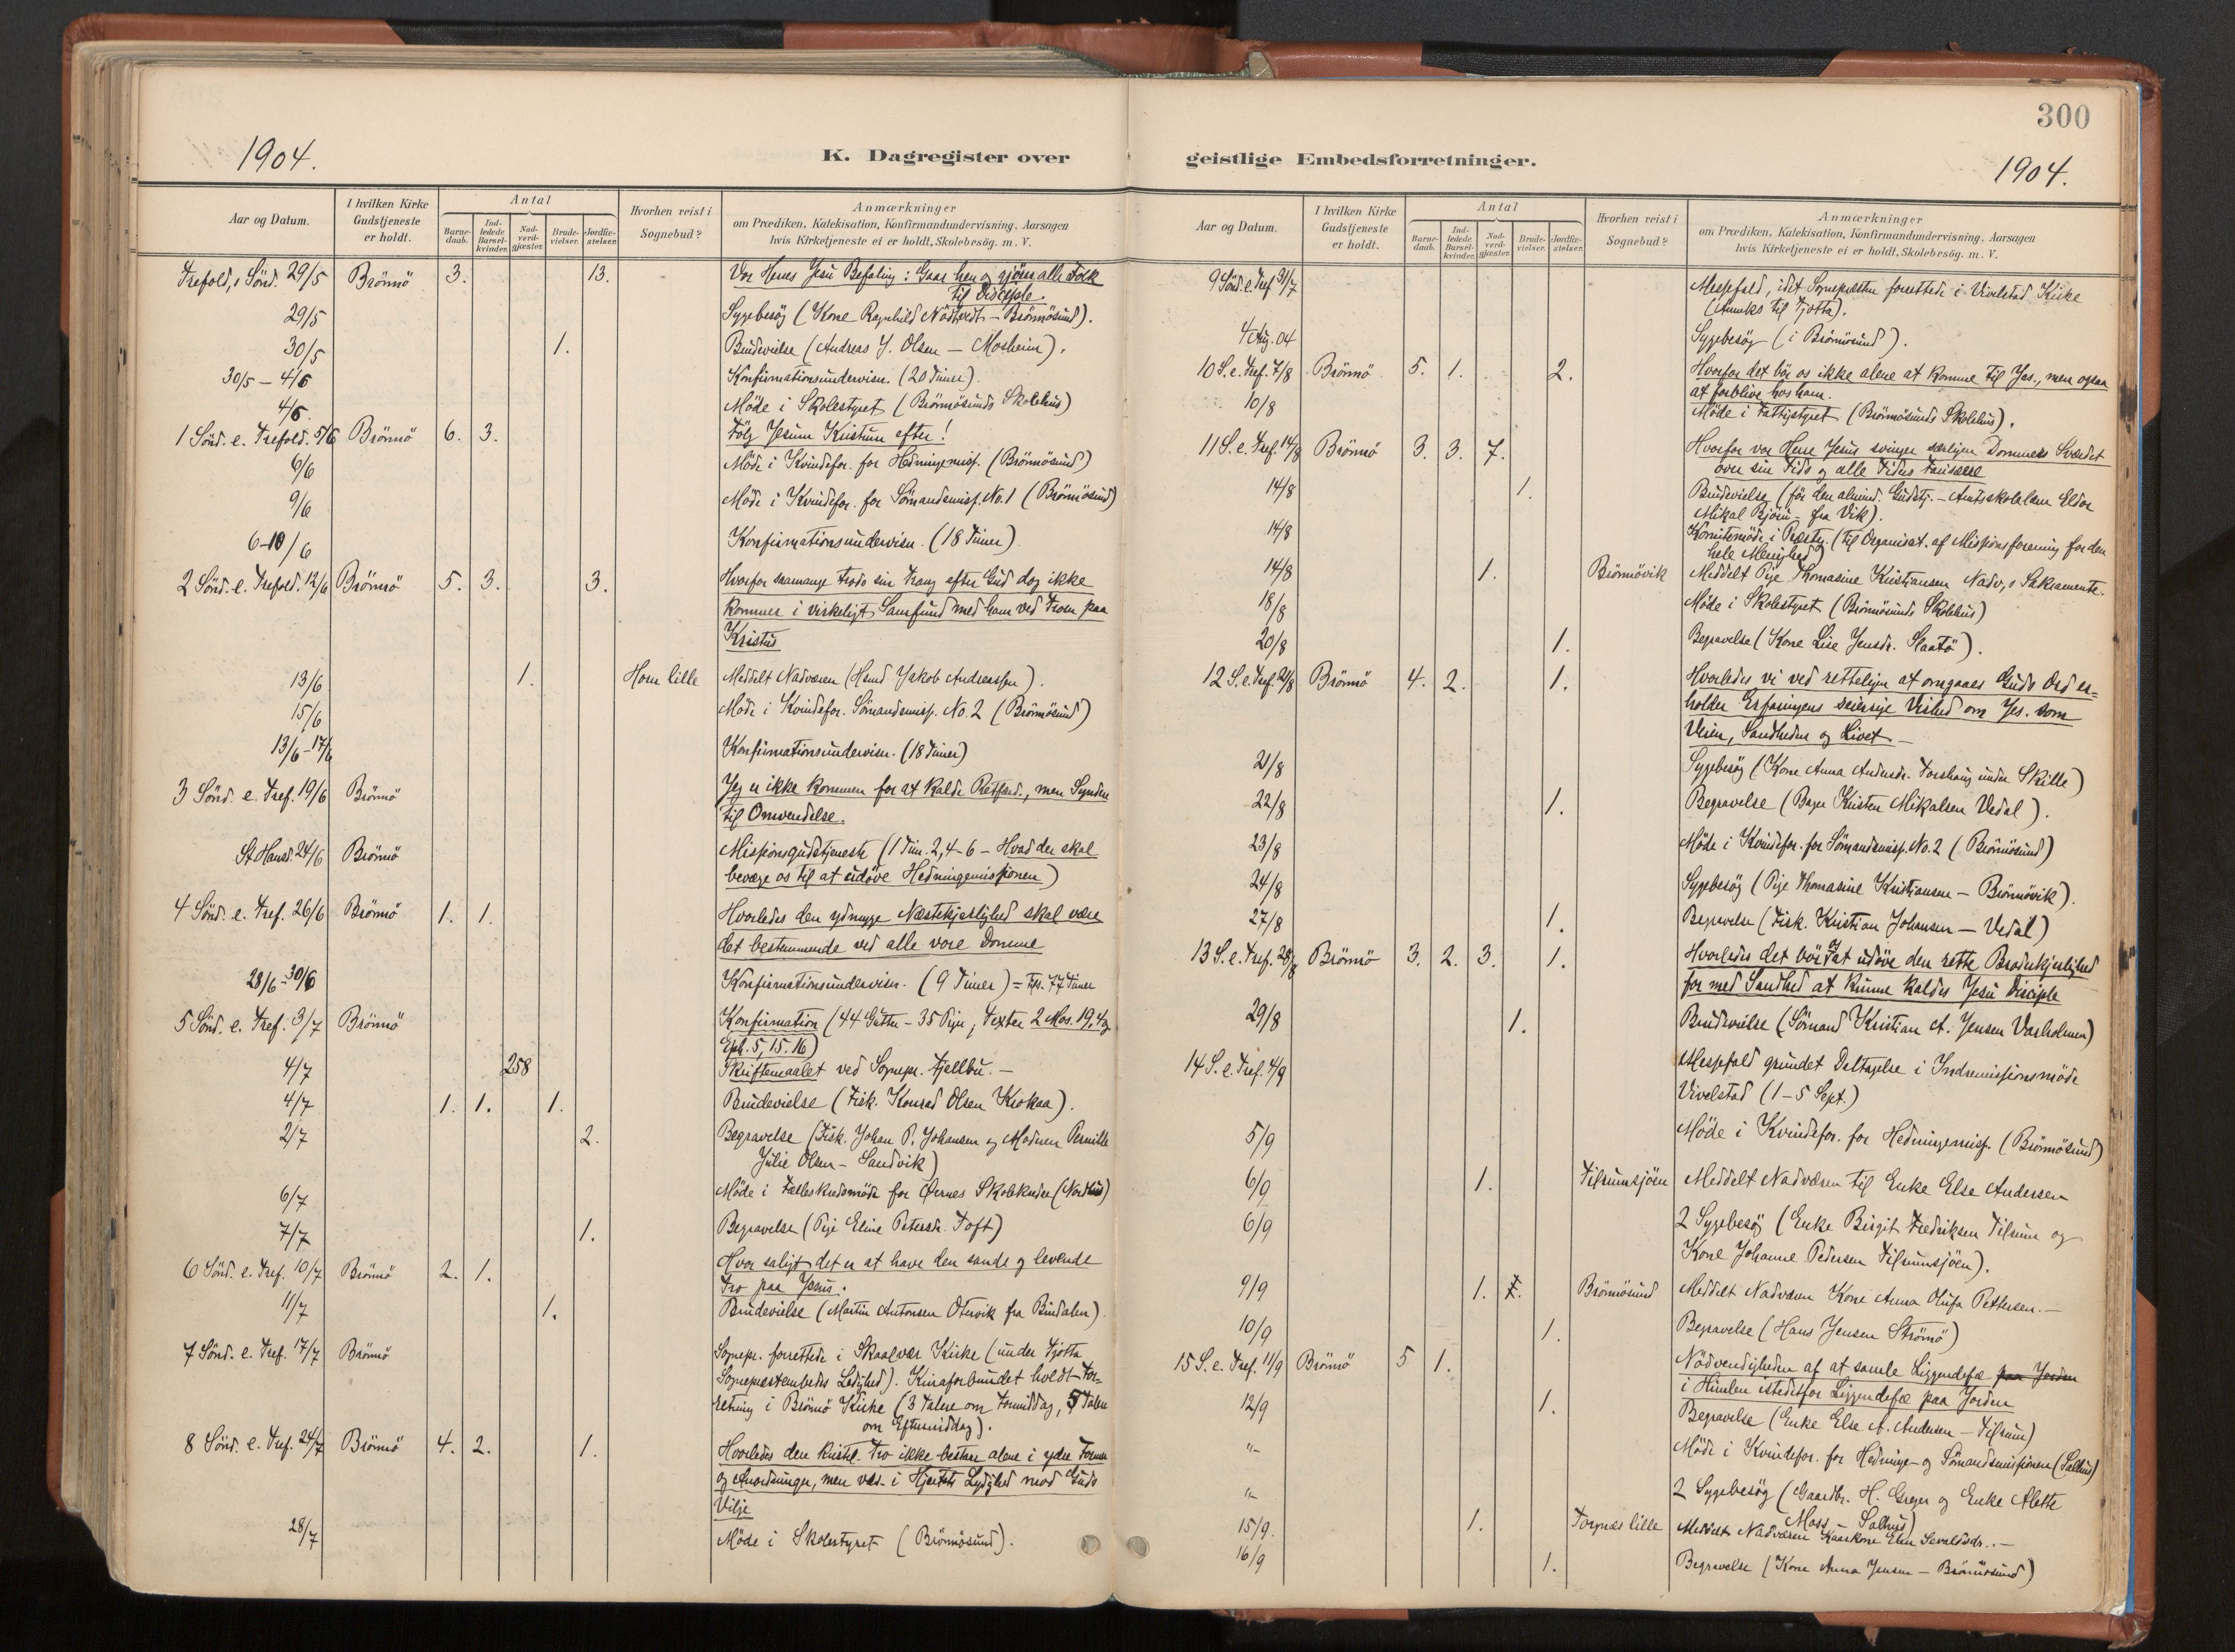 300
1904.
K. Dagregister over
geistlige Embedsforretninger.
1904.
Aar og Datum.
I hvilken Kirke Gudstjeneste er holdt.
Antal
Barne-daab.
Ind-ledede Barsel-kvinder.
Nad-verd-gjæster.
Brude-vielser.
Jordfæ-stelser.
Hvorhen reist i Sognebud?
Anmærkninger
om Prædiken, Katekisation, Konfirmandundervisning, Aarsagen
hvis Kirketjeneste ei er holdt, Skolebesög. m. V.
Trefold. s Sönd. 29/5 Brönnö 3. 13. Vor Herres Jesu Befaling: Gaar hen og gjörer alle Folk
til Disciple.
29/5 Sygebesög (Kone Ragnhild Nödtvedt - Brönnösund).
30/5 1. Brudevielse (Andreas J. Olsen - Mosheim).
30/5 - 4/6 Konfirmationsundervisn. (20 Timer).
4/6. Möde i Skolestyret (Brönnösunds Skolehus)
1 Sönd. e. Trefold. 5/6 Brönnö 6. 3. Fölg Jesum Kristum efter!
6/6 Möde i Kvindefor. for Hedningemisj. (Brönnösund)
9/6 Möde i Kvindefor. for Sömandsmisj. No. 1 (Brönnösund)
6-10/6 Konfirmationsundervisn. (18 Timer).
2 Sönd. e. Trefold. 12/6 Brönnö 5. 3. 3. Hvorfor saamange trods sin Trang efter Gud dog ikke
kommer i virkeligt Samfund med ham ved Troen paa
Kristus
13/6 1. Horn lille Meddelt Nadveren (Hsmd Jakob Andreassen).
15/6 Möde i Kvindefor. Sömandsmisj. No. 2 (Brönnösund)
13/6 - 17/6 Konfirmationsundervisn. (18 Timer)
3 Sönd. e. Tref. 19/6 Brönnö Jeg er ikke kommen for at kalde Retfærd., men Syndere
til Omvendelse.
St. Hansd. 24/6 Brönnö Missionsgudstjeneste (1 Tim. 2, 4-6 - Hvad der skal
bevæge os til at udöve Hedningemissionen)
4 Sönd. e. Tref. 26/6 Brönnö 1. 1. Hvorledes den ydmyge Næstekjærlighed skal være
det bestemmende ved alle vore Domme
28/6 - 30/6 Konfirmationsundervisn. (9 Timer) = Tils. 77 Timer
5 Sönd. e. Tref. 3/7 Brönnö Konfirmation (44 Gutter - 35 Piger, Texter 2 Mos. 19, 4 og
Eph. 5, 15. 16)
4/7 258 Skriftemaalet ved Sognepr. Fjellbu. -
4/7 1. 1. 1. Brudevielse (Fisk. Konrad Olsen Krokaa).
2/7 2. Begravelse (Fisk. Johan P. Johansen og Moderen Pernille
Julie Olsen - Sandvik)
6/7 Möde i Fælleskredsmöde for Öernes Skolekredse (Nordhus)
7/7 1. Begravelse (Pige Eline Petersdr. Toft)
6 Sönd. e. Tref. 10/7 Brönnö 2. 1. Hvor saligt det er at have den sande og levende
Tro paa Jesus.
11/7 1. Brudevielse (Martin Antonsen Otervik fra Bindalen).
7 Sönd. e. Tref. 17/7 Brönnö Sognepr. forrettede i Skaalvær Kirke (under Tjötta
Sognepræstembedes Ledighed). Kinaforbundet holdt For-
retning i Brönnö Kirke (3 Talere om Formiddag, 5 Talere
om Eftermiddag).
8 Sönd. e. Tref. 24/7 Brönnö 4. 2. 1. Hvorledes den kristel. Tro ikke bestaar alene i ydre Former
og Anordninger, men væs. i Hjertets Lydighed mod Guds
Vilje
28/7 Möde i Skolestyret (Brönnösund).
Aar og Datum.
I hvilken Kirke Gudstjeneste er holdt.
Antal
Barne-daab.
Ind-ledede Barsel-kvinder.
Nad-verd-gjæster.
Brude-vielser.
Jordfæ-stelser.
Hvorhen reist i Sognebud?
Anmærkninger
om Prædiken, Katekisation, Konfirmandundervisning, Aarsagen
hvis Kirketjeneste ei er holdt, Skolebesög. m. V.
9 Sönd. e. Tref. 31/7 Messefald, idet Sognepræsten forrettede i Vivelstad Kirke
(Anneks til Tjötta).
4 Aug. 04 Sygebesög (i Brönnösund).
10 S. e. Tref. 7/8 Brönnö 5. 1. 2. Hvorfor det bör os ikke alene at komme til Jes., men ogsaa
at forblive hos ham.
10/8 Möde i Fattigstyret (Brönnösunds Skolehus).
11 S. e. Tref. 14/8 Brönnö 3. 3. 7. Hvorfor vor Herre Jesus svinger Dommens Sværdet
over sin Tids og alle Tiders Farisæere
14/8 1. Brudevielse (för den almind. Gudstj. - Amtsskolelærer Eldor
Mikal Björn - fra Vik).
14/8 Komitemöde i Præstg. (til Organisat. af Missionsforening for den
hele Menighed)
14/8 1. Brönnövik Meddelt Pige Thomasine Kristiansen Nadv. s Sakramente.
18/8 Möde i Skolestyret (Brönnösunds Skolehus)
20/8 1. Begravelse (Kone Lise Jensdr. Slaatö).
12 S. e. Tref. 21/8 Brönnö 4. 2. 1. Hvorledes vi ved rettelige at omgaaes Guds Ord er-
holder Erfaringens seiersige Vished om Jes. som
Veien, Sandheden og Livet -
21/8 Sygebesög (Kone Anna Andersdr. Torshaug under Skille)
22/8 1. Begravelse (Bager Kristen Mikalsen Vedal).
23/8 Möde i Kvindefor. for Sömandsmisj. No. 2 (Brönnösund)
24/8 Sygebesög (Pige Thomasine Kristiansen - Brönnövik).
27/8 1. Begravelse (Fisk. Kristian Johansen - Vedal)
13 S. e. Tref. 28/8 Brönnö 3. 2. 3. 1. Hvorledes det bör os at udöve den rette Broderkjærlighed
for med Sandhed at kunne kaldes Jesu Disciple
29/8 1. Brudevielse (Sömand Kristian A. Jensen Varholmen)
14 S. e. Tref. 4/9 Messefald grundet Deltagelse i Indremissionsmöde
Vivelstad (1-5 Sept.)
5/9 Möde i Kvindefor. for Hedningemisj. (Brönnösund)
6/9 1. Tilrumsjöen Meddelt Nadveren til Enke Else Andersen
6/9 2 Sygebesög (Enke Birgit Fredriksen Tilrum og
Kone Johanne Pedersen Tilrumsjöen).
9/9 1. 7. Brönnösund Meddelt Nadveren Kone Anna Olufa Pettersen. -
10/9 1. Begravelse (Hans Jensen Strömö)
15 S. e. Tref. 11/9 Brönnö 5 1. Nödvendigheden af at samle Liggendefæ paa Jorden
i Himlen istedetfor Liggendefæ paa Jorden
12/9 1. Begravelse (Enke Else A. Andersen - Tilrum)
"- Möde i Kvindefor. for Hedninge- og Sömandsmissionen (Salhus)
"- 2 Sygebesög (Gaardbr. H. Greger og Enke Alette
Moss - Salhus)
15/9. 1. Torgnæs lille Meddelt Nadveren Kaarkone Elen Sevaldsdr. -
16/9 1. Begravelse (Kone Anna Jensen - Brönnösund)